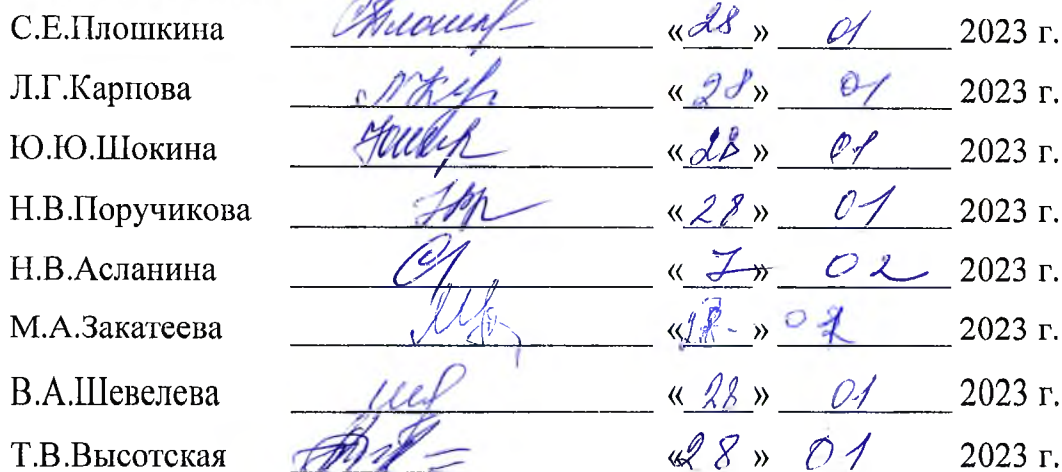 С.Е.Плошкина «28» 01 2023 г.
Л.Г.Карпова «28» 01 2023 г.
Ю.Ю.Шокина «28» 01 2023 г.
Н.В.Поручикова «28» 01 2023 г.
Н.В.Асланина «7» 02 2023 г.
М.А.Закатеева « » 2023 г.
В.А.Шевелева «28» 01 2023 г.
Т.В.Высотская «28» 01 2023 г.